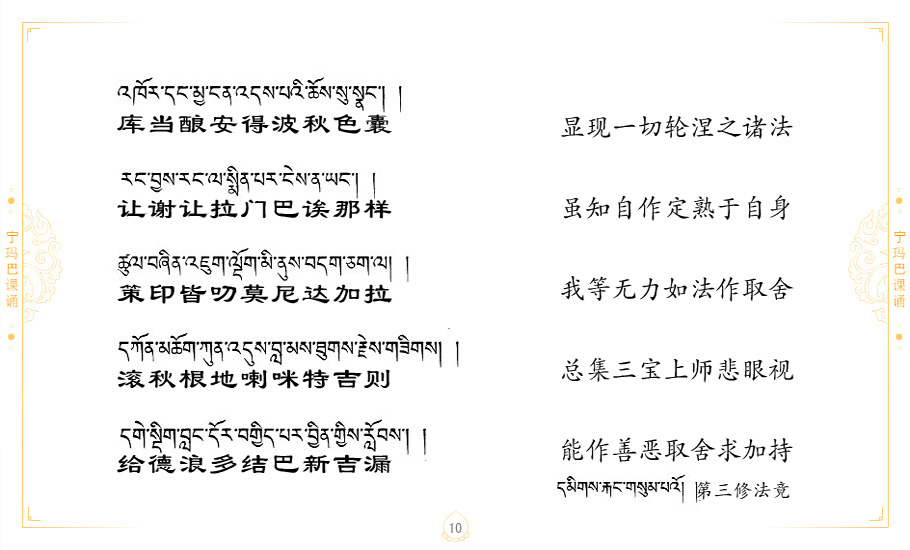 འཁོར་དང་མྱ་ངན་འདས་པའི་ཆོས་སུ་སྣང་། །
库当酿安得波秋色囊
显现一切轮涅之诸法
རང་བྱས་རང་ལ་སྨིན་པར་ངེས་ན་ཡང་། །
让谢让拉门巴诶那样
虽知自作定熟于自身
ཚུལ་བཞིན་འཇུག་ལྡོག་མི་ནུས་བདག་ཅག་ལ། །
策印皆叨莫尼达加拉
我等无力如法作取舍
དཀོན་མཆོག་ཀུན་འདུས་བླ་མས་ཐུགས་རྗེས་གཟིགས། །
滚秋根地喇咪特吉则
总集三宝上师悲眼视
དགེ་སྡིག་བླང་དོར་བགྱིད་པར་བྱིན་གྱིས་རློབས། །
给德浪多结巴新吉漏
能作善恶取舍求加持
དམིགས་རྐང་གསུམ་པའོ། །第三修法竟
宁玛巴课诵
宁玛巴课诵
10